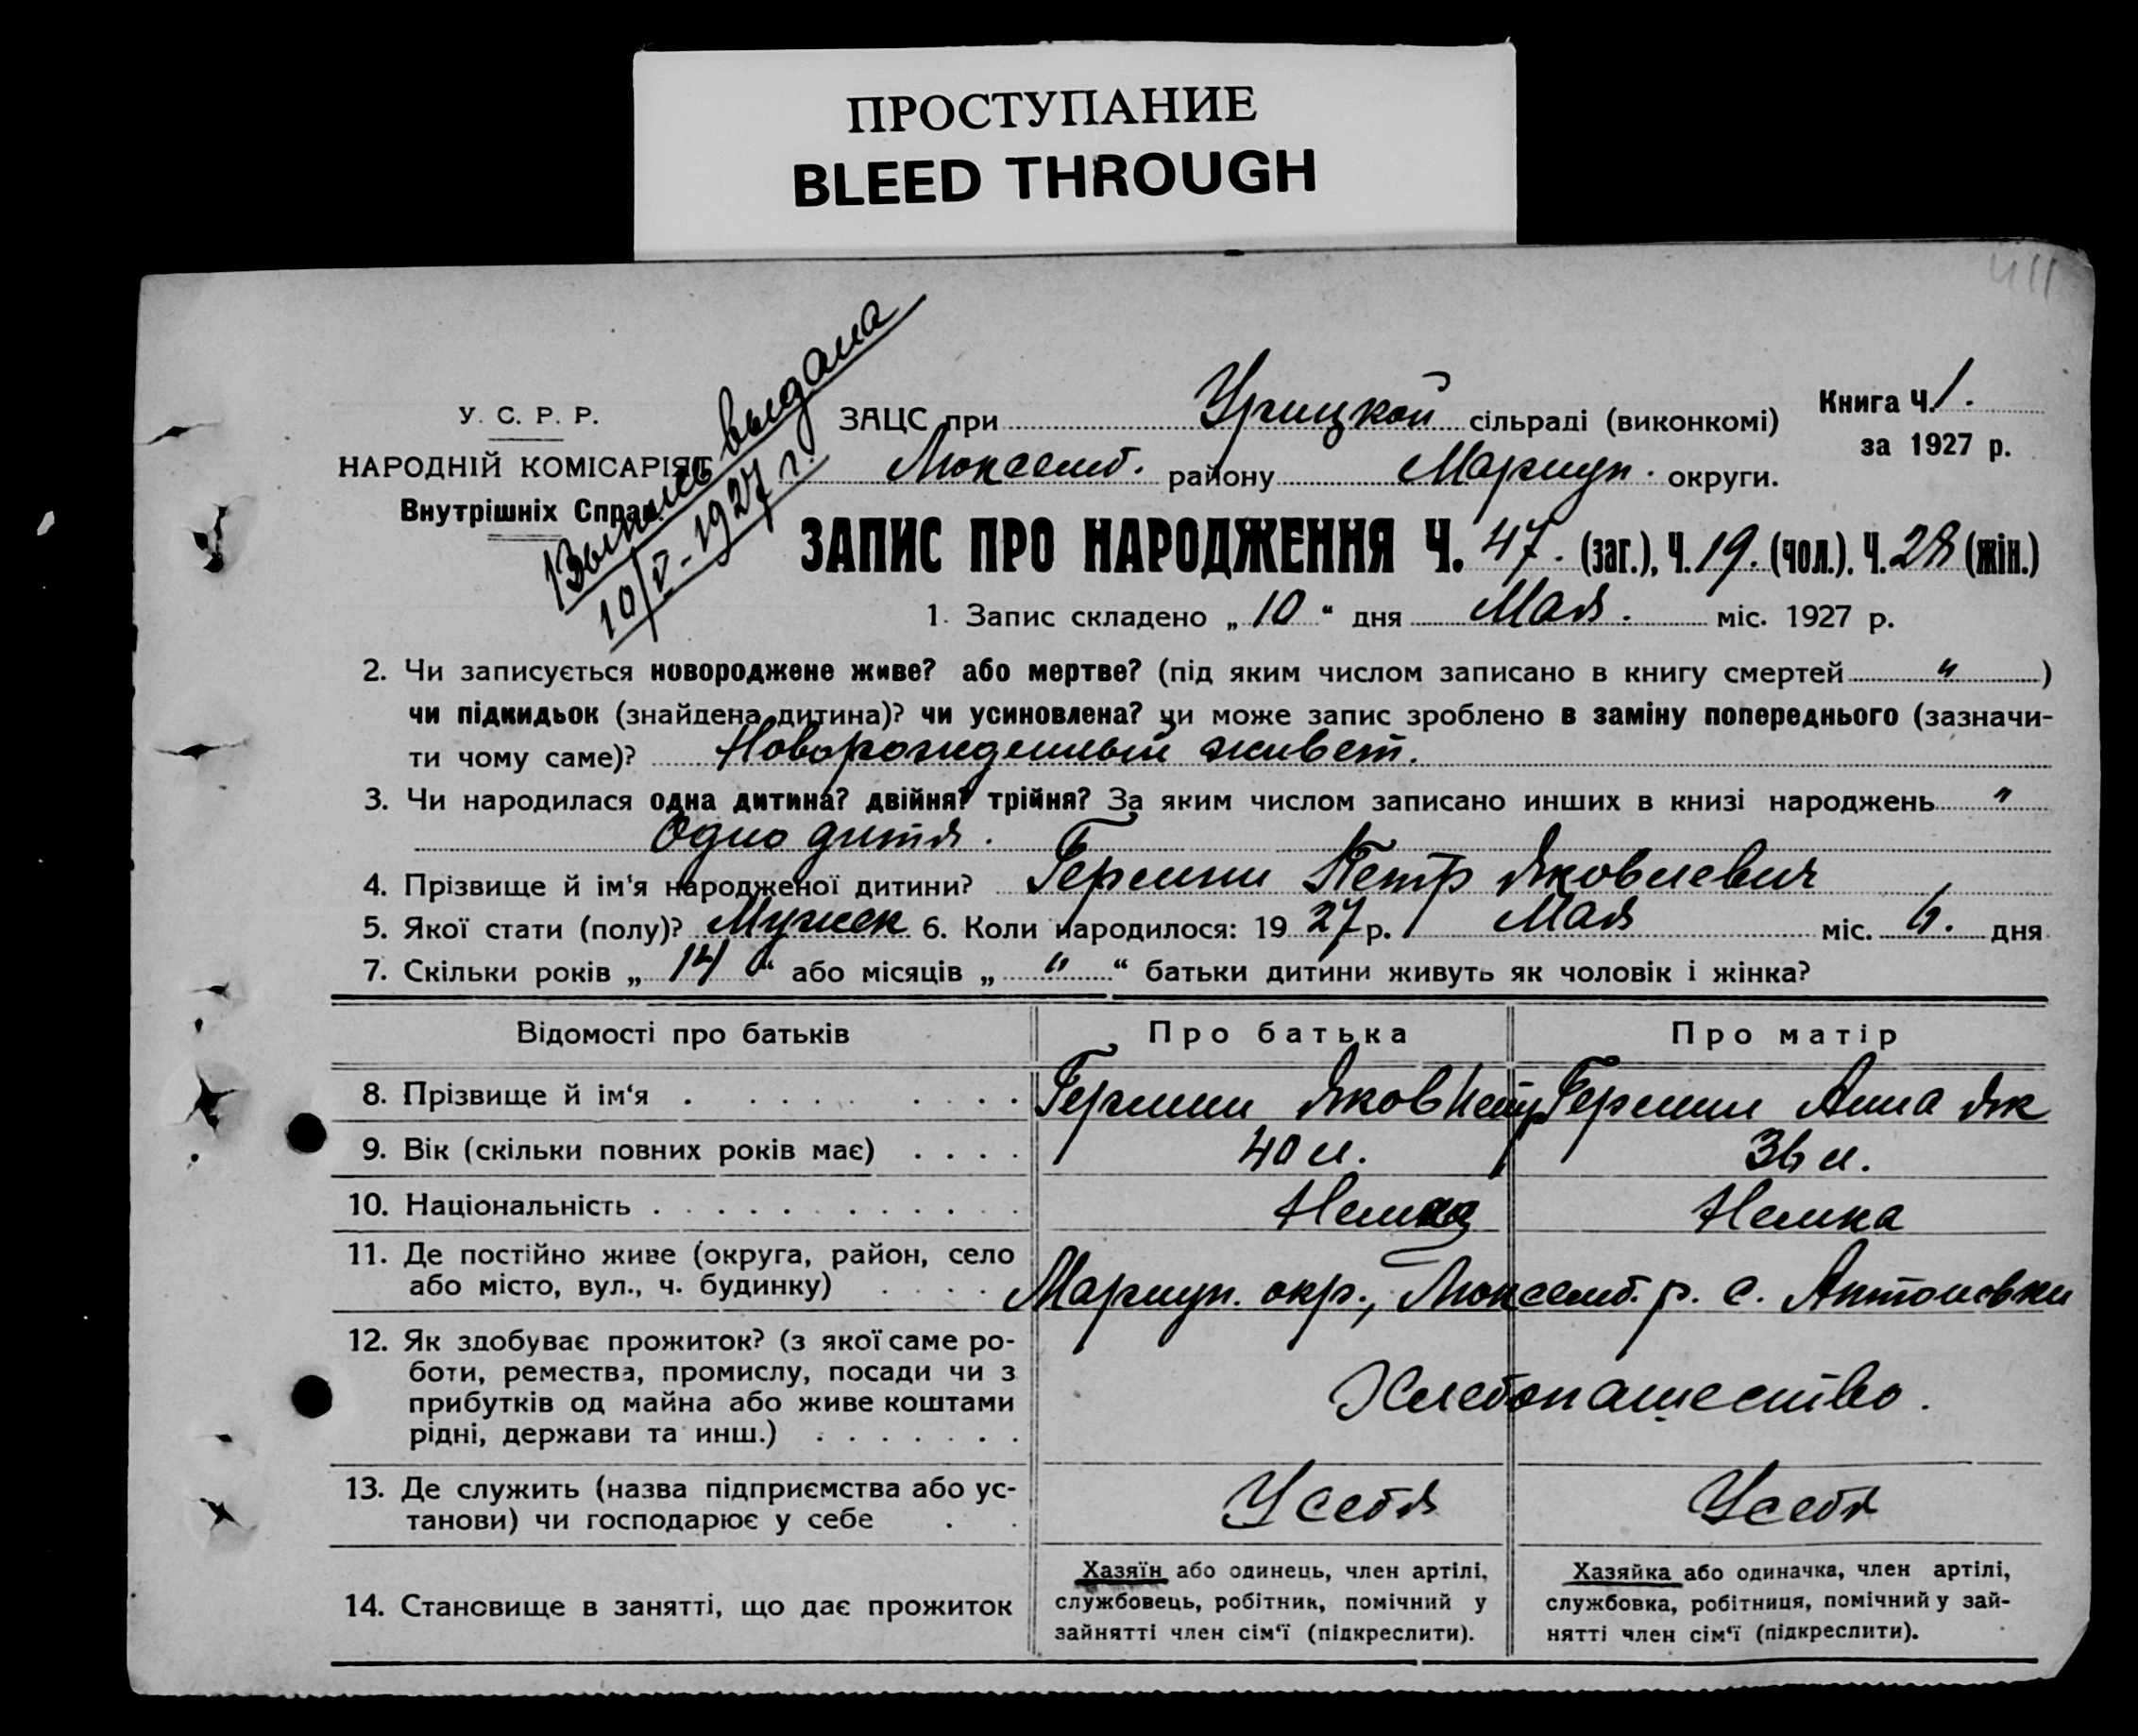 ПРОСТУПАНИЕ
BLEED THROUGH
411
Выпись выдана
10/V-1927 г.
У. С. Р. Р.
НАРОДНІЙ КОМІСАРІЯТ
Внутрішніх Справ.
ЗАЦС при Урицкой сільраді (виконкомі)
Люксемб. району Мариуп. округи.
Книга Ч. 1.
за 1927 р.
ЗАПИС ПРО НАРОДЖЕННЯ Ч. 47. (заг.), Ч. 19. (чол.). Ч. 28 (жін.)
1. Запис складено „ 10 “ дня Мая. міс. 1927 р.
2. Чи записується новороджене живе? або мертве? (під яким числом записано в книгу смертей " )
чи підкидьок (знайдена дитина)? чи усиновлена? чи може запис зроблено в заміну попереднього (зазначи-
ти чому саме)? Новорожденный живет.
3. Чи народилася одна дитина? двійня? трійня? За яким числом записано инших в книзі народжень "
Одно дитя.
4. Прізвище й ім'я народженої дитини? Петр Яковлевич
5. Якої стати (полу)? Мужск 6. Коли народилося: 19 27 р. Мая міс. 6. дня
7. Скільки років „ 14 “ або місяців „ " “ батьки дитини живуть як чоловік і жінка?
Відомості про батьків Про батька Про матір
8. Прізвище й ім‘я . . . . . . . . . Яков Петр Анна Як
9. Вік (скільки повних років має) . . . . 40 л. 36 л.
10. Національність . . . . . . . . . . . . Немец Немка
11. Де постійно живе (округа, район, село
або місто, вул., ч. будинку) . . . . Мариуп. окр., Люксемб. р. с. Антоновки
12. Як здобуває прожиток? (з якої саме ро-
боти, ремества, промислу, посади чи з
прибутків од майна або живе коштами
рідні, держави та инш.) . . . . . . .
Хлебопашество.
13. Де служить (назва підприємства або ус-
танови) чи господарює у себе . .
У себя У себя
14. Становище в занятті, що дає прожиток
Хазяїн або одинець, член артілі,
службовець, робітник, помічний у
зайнятті член сім‘ї (підкреслити).
Хазяйка або одиначка, член артілі,
службовка, робітниця, помічний у зай-
нятті член сім‘ї (підкреслити).